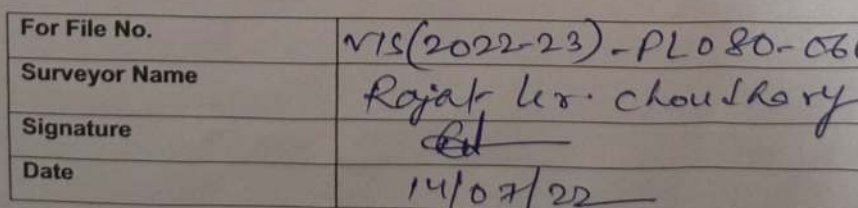 For File No. VIS(2022-23)-PL080-06
Surveyor Name Rajat Kr. Choudhary
Signature
Date 14/07/22